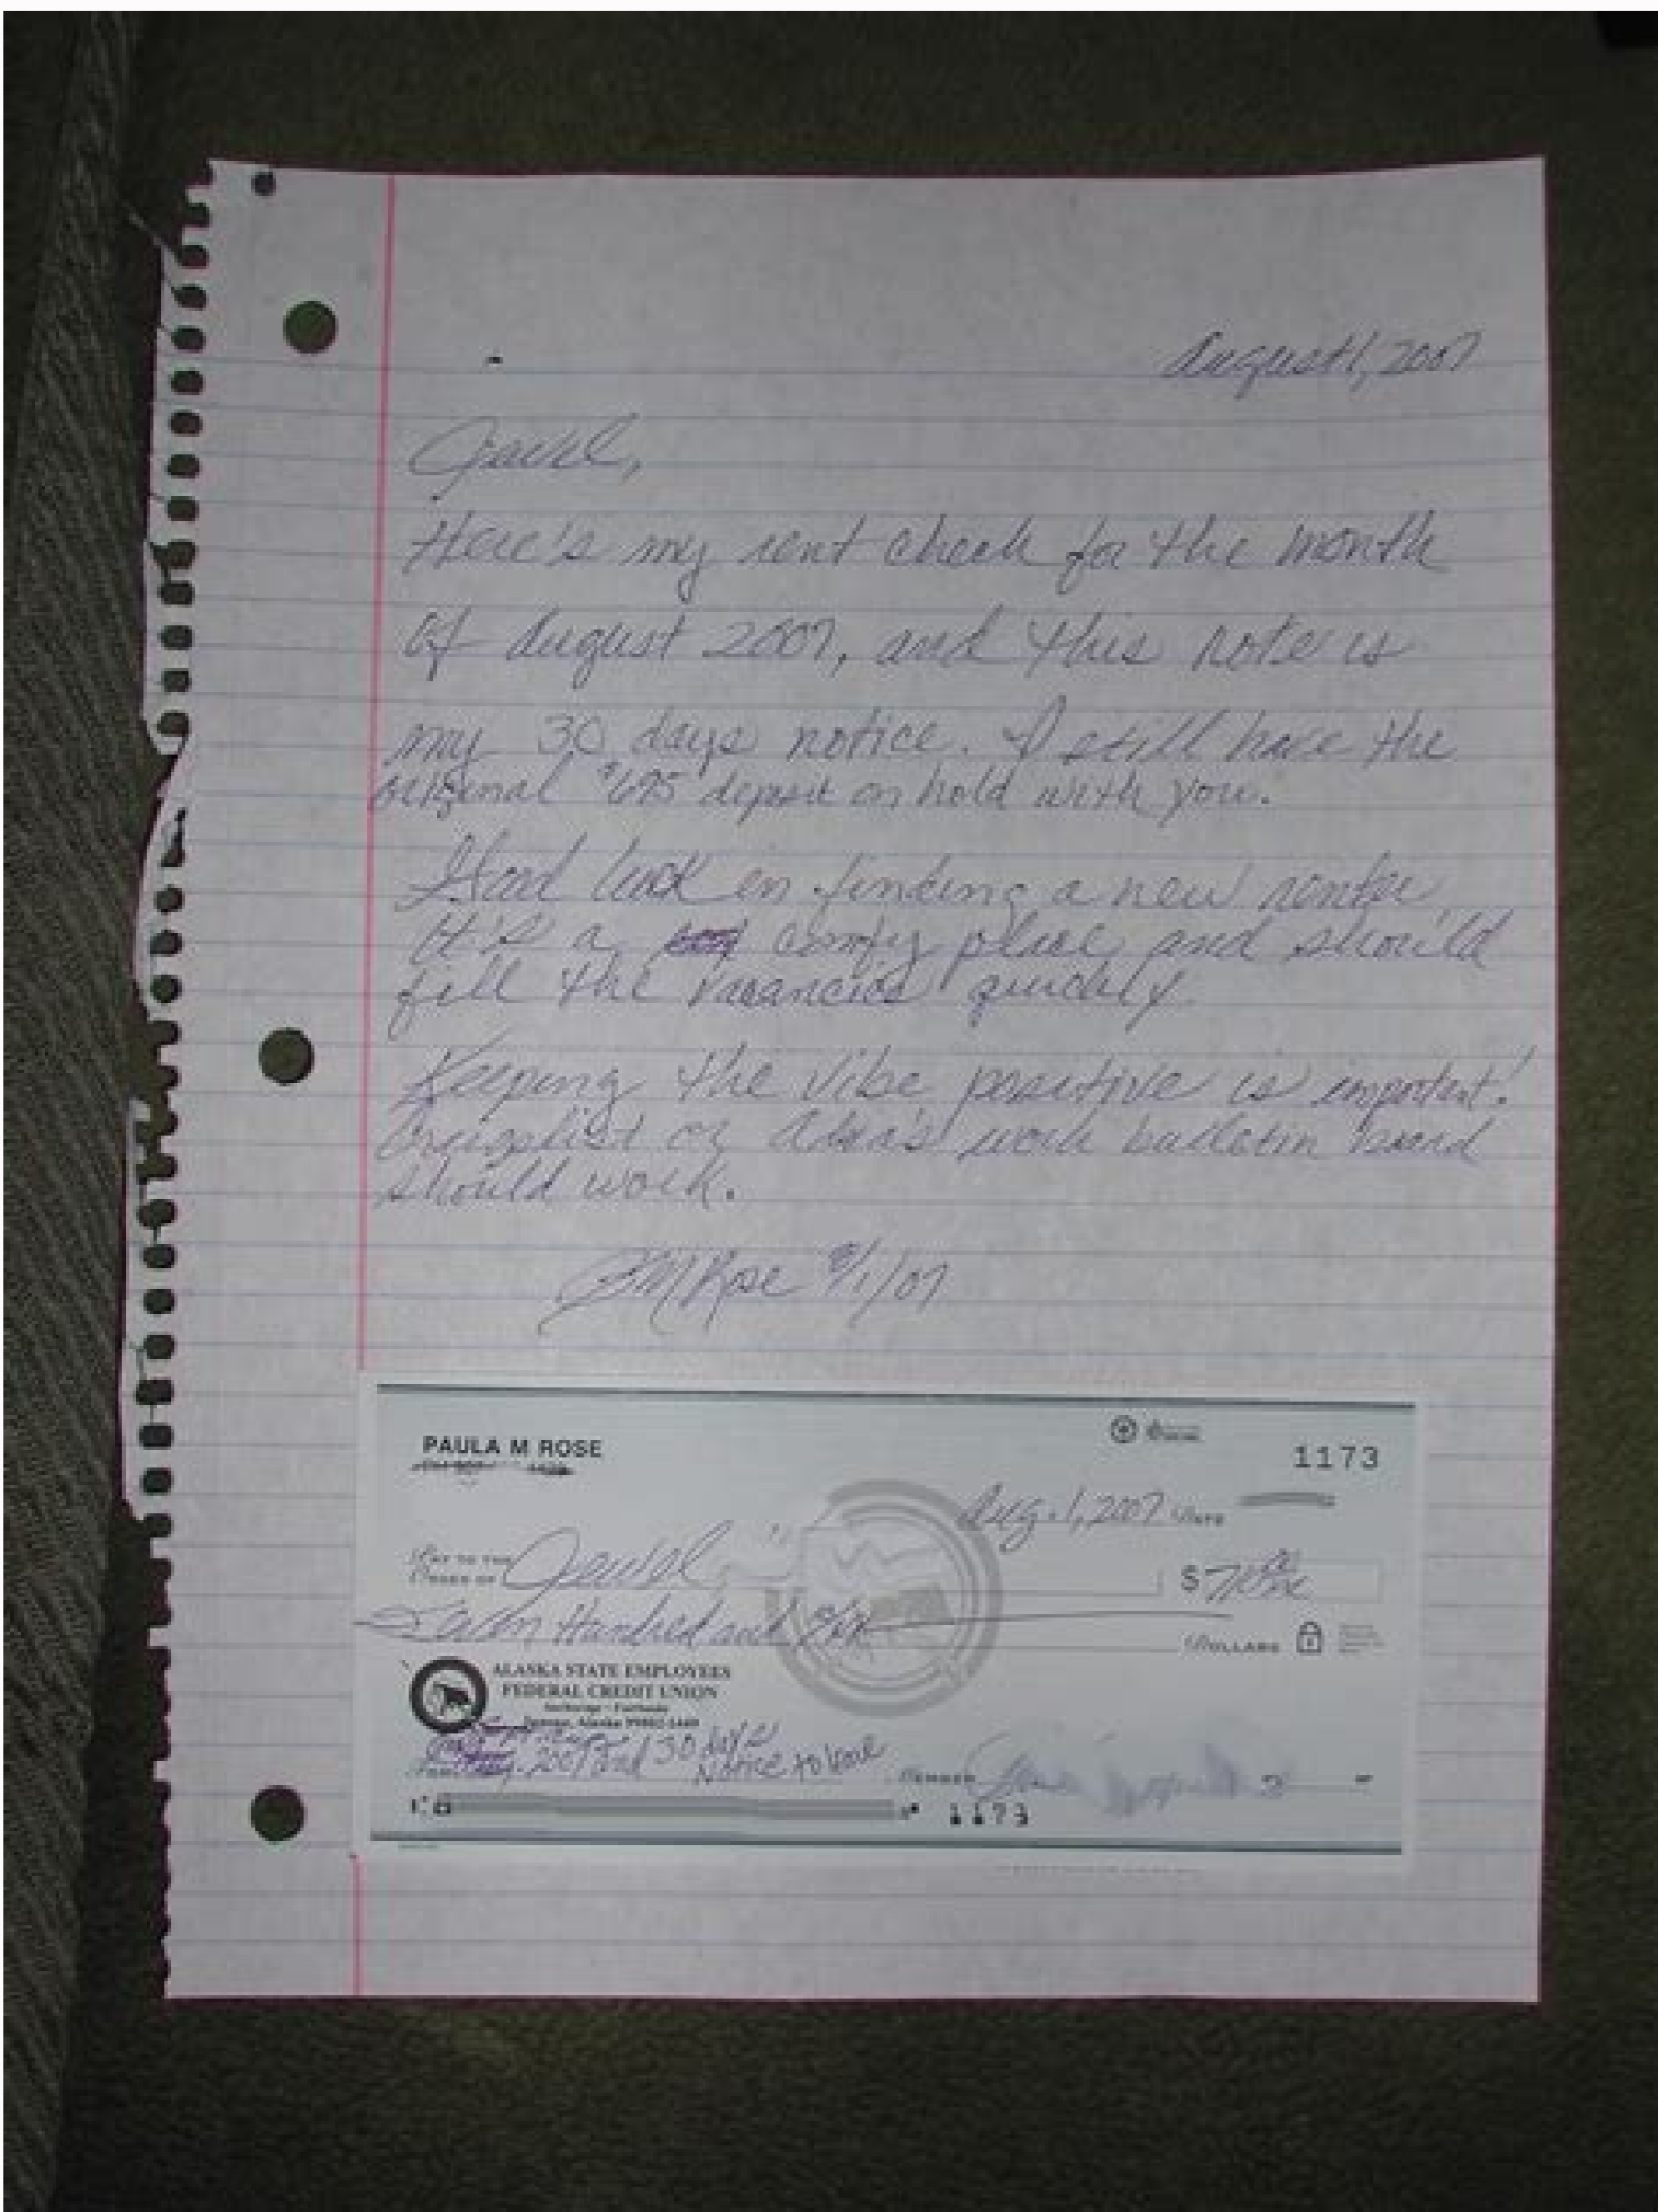 August 1, 2007
Jewel,
Here's my rent check for the month
of August 2007, and this note is
my 30 days notice. I still have the
original $695 deposit on hold with you.
Good luck in finding a new renter.
It's a comfy place and should
fill the vacancies quickly.
Keeping the vibe positive is important!
Craigslist or work bulletin board
should work.
PM Rose 8/1/07
PAULA M ROSE
1173
Aug. 1, 2007 DATE
PAY TO THE
ORDER OF Jewel
$
Seven Hundred and
DOLLARS
ALASKA STATE EMPLOYEES
FEDERAL CREDIT UNION
Anchorage • Fairbanks
Juneau, Alaska
2007 and 30 days
Notice to
MEMBER
1173